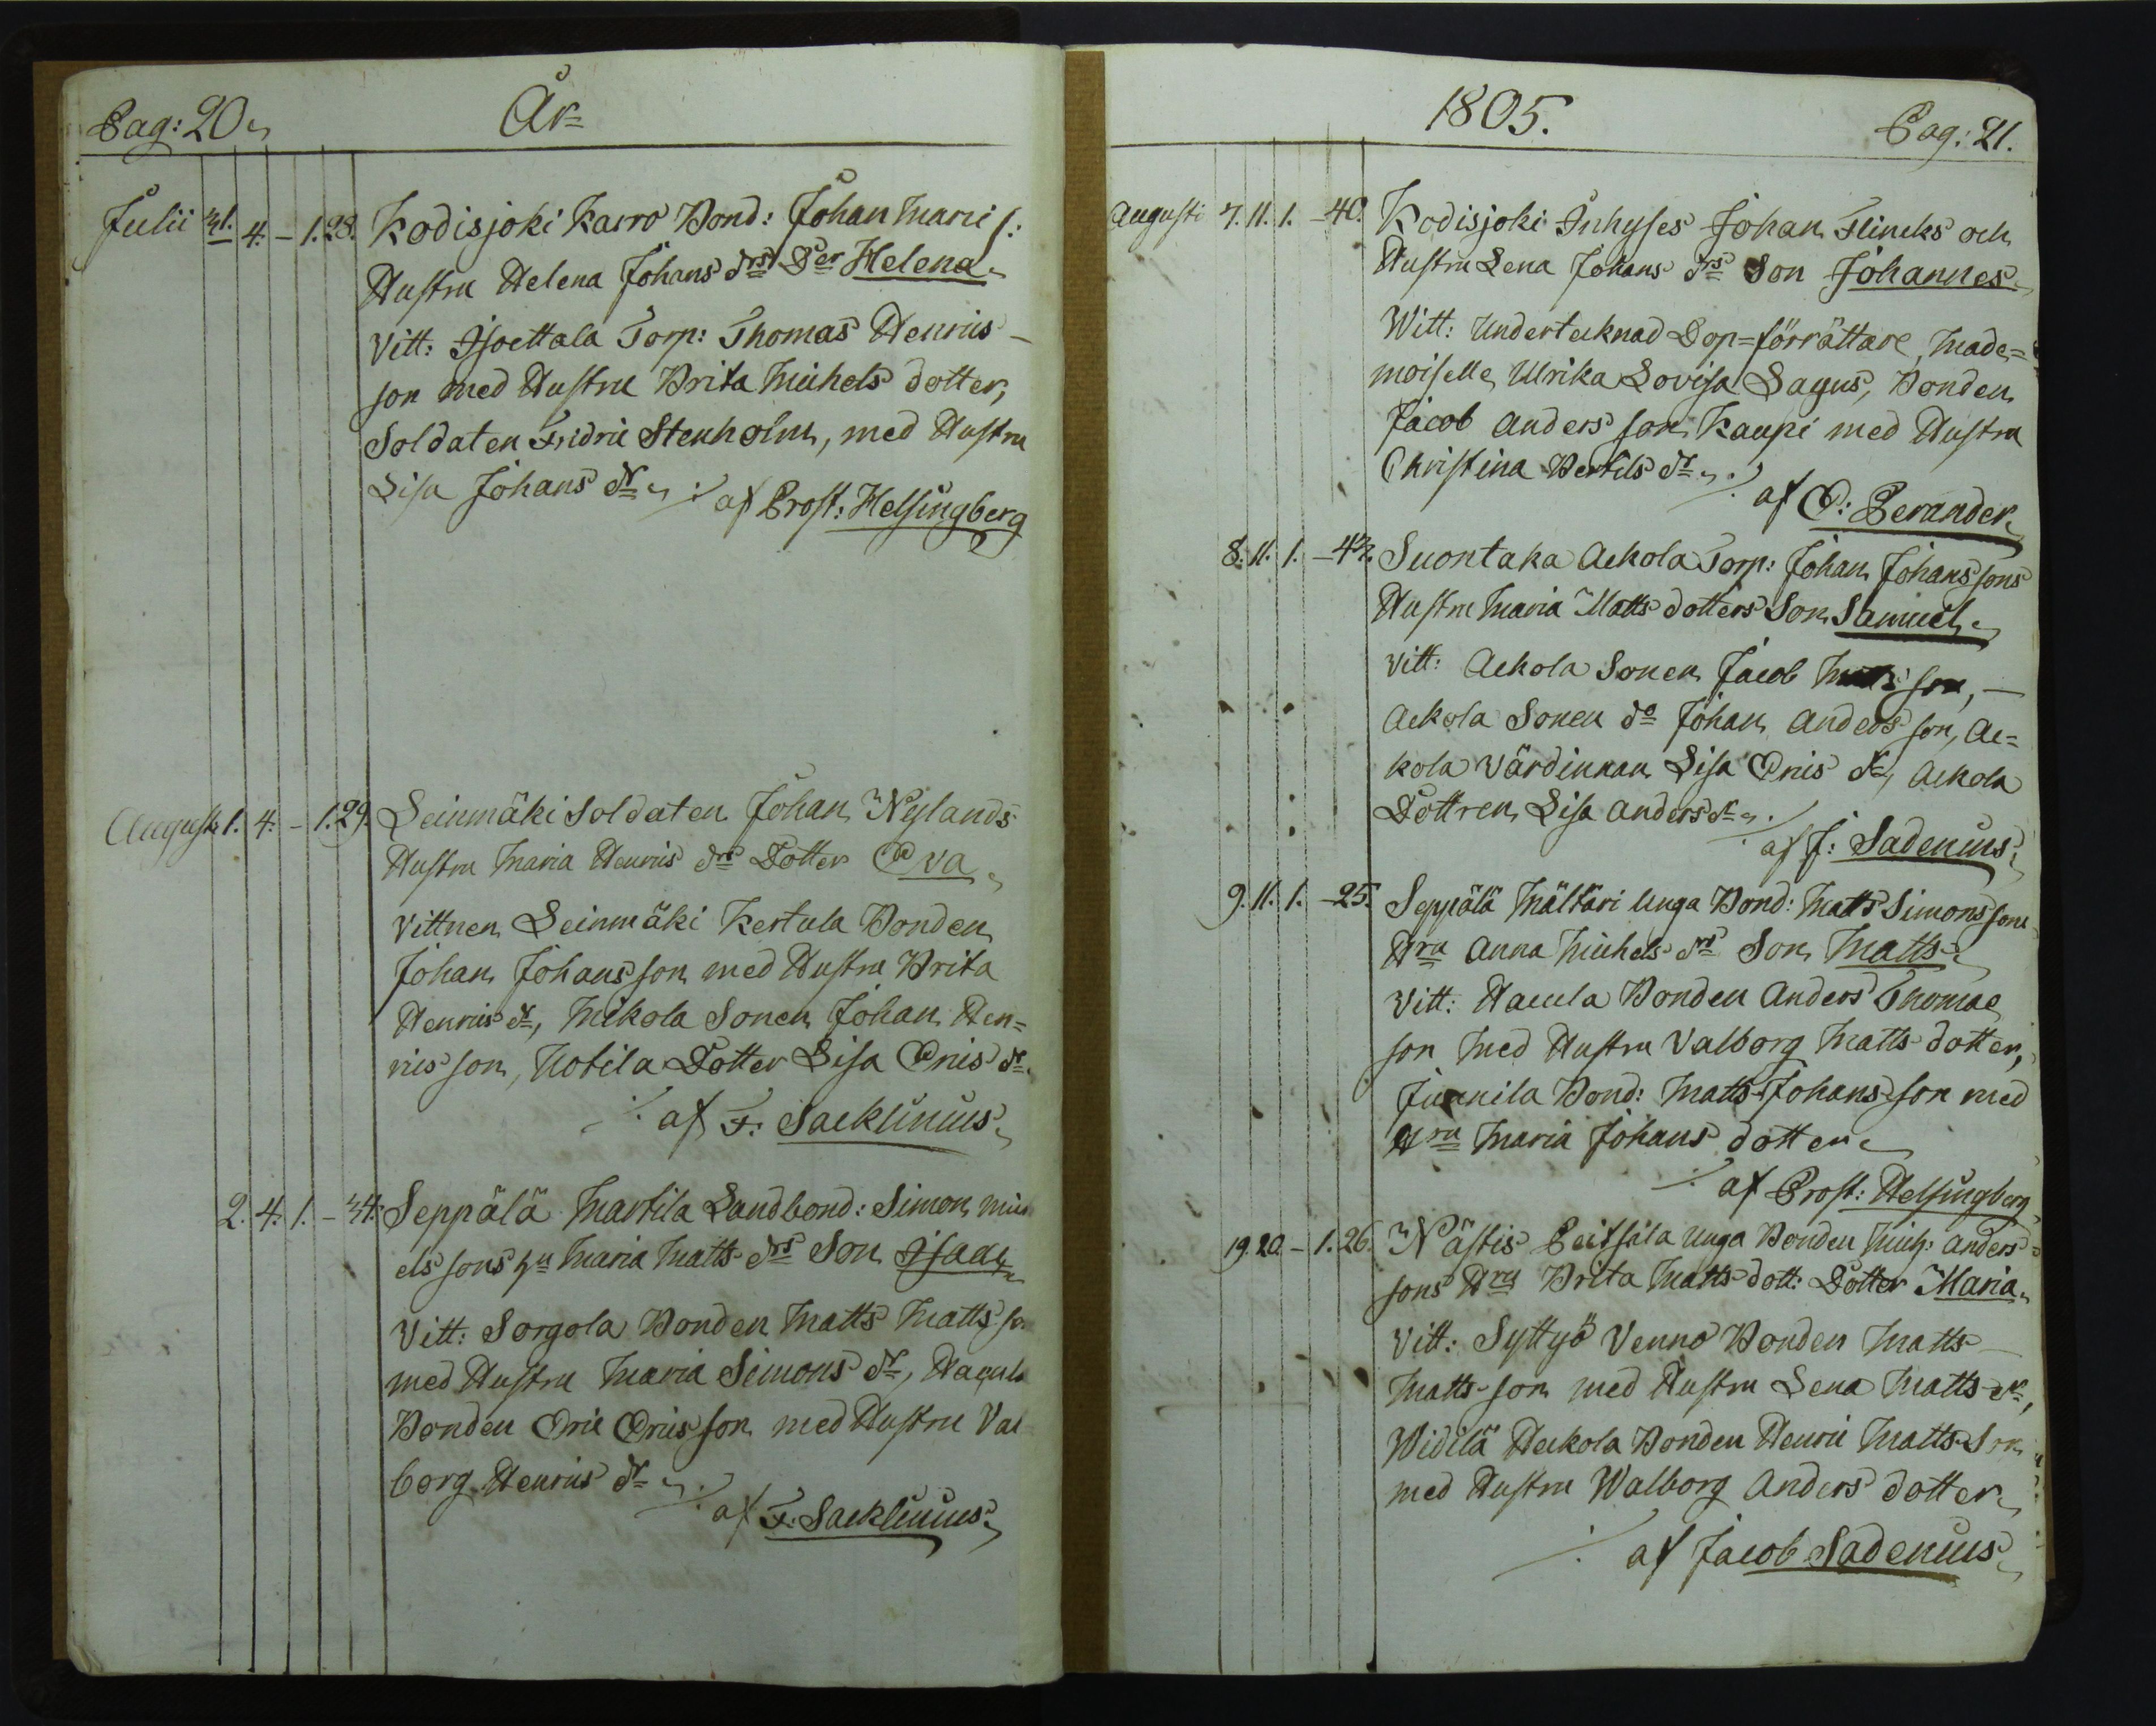 Pag: 20
År
Julii 31. 4. – 1. 28. Kodisjoki Karro Bond: Johan Marci s:
Hustru Helena Johans drs Dr Helena
Vitt: Isoettala Torp: Thomas Henrics
son med Hustru Brita Michels dotter,
Soldaten Fridric Stenholm, med Hustru
Lisa Johans dr
af Prost: Helsingberg
Augusti 1. 4. – 1. 29. Leinmäki Soldaten Johan Nylands
Hustru Maria Henrics drs Dotter Eva
Vittnen Leinmäki Kertula Bonden
Johan Johansson med Hustru Brita
Henrics dr, Mikola Sonen Johan Hen=
rics son, Uotila Dotter Lisa Erics dr
af F: Sacklinius
2. 4. 1. – 34. Seppälä Martila Landbond: Simon Mich
els sons hu Maria Matts drs Son Isaac
Vitt: Sorgola Bonden Matts Matts so
med Hustru Maria Simons dr, Hacula
Bonden Eric Ericsson med Hustru Val
borg Henrics dr
af F. Sacklinius
1805.
Pag: 21.
Augusti 7. 11. 1. – 40. Kodisjoki Inhyses Johan Flincks och
Hustru Lena Johans drs Son Johannes
Witt: Undertecknad Dop=förrättare, Made=
moiselle Ulrika Lovisa Lagus, Bonden
Jacob Anders son Kaupi med Hustru
Christina Bertils dr
af E: Perander
8. 11. 1. – 42. Suontaka Ackola Torp: Johan Johanssons
Hustru Maria Matts dotters Son Samuel
Vitt: Ackola Sonen Jacob Matts son, –
Ackola Sonen do Johan Anders son, Ac=
kola Värdinnan Lisa Erics dr, Ackola
Dottren Lisa Anders dr
af J: Sadenius
9. 11. 1. – 25. Seppälä Mältäri Unga Bond: Matts Simons sons
Hru Anna Michels drs Son Matts
Vitt: Hacula Bonden Anders Thomae
son med Hustru Valborg Matts dotter,
Junnila Bond: Matts Johans son med
Hru Maria Johans dotter
af Prost: Helsingberg
19. 20. – 1. 26. Nästis Peitsala Unga Bonden Mich: Anders=
sons Hru Brita Matts dott: Dotter Maria
Vitt: Syttyö Venno Bonden Matts
Matts son med Hustru Lena Matts dr,
Widilä Heckola Bonden Henric Matts Son
med Hustru Walborg Anders dotter
af Jacob Sadenius